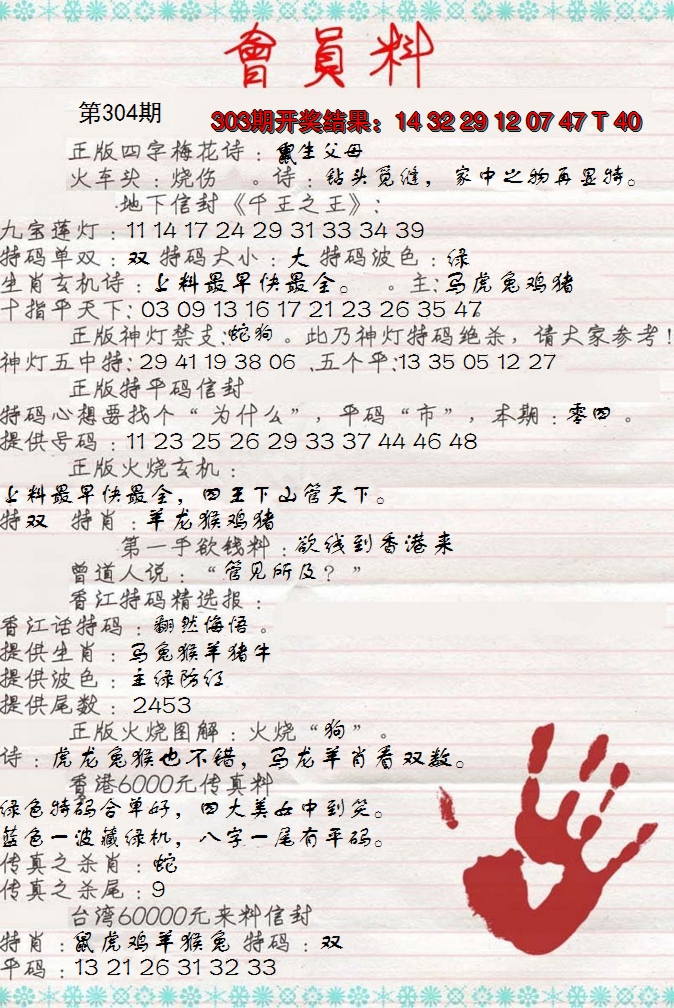 會員料
第304期
303期开奖结果：14 32 29 12 07 47 T 40
正版四字梅花诗：鼠生父母
火车头：烧伤 。诗：钻头觅缝，家中之物再显特。
地下信封《千王之王》：
九宝莲灯：11 14 17 24 29 31 33 34 39
特码单双：双 特码大小：大 特码波色：绿
生肖玄机诗：上料最早快最全。 。主：马虎兔鸡猪
十指平天下：03 09 13 16 17 21 23 26 35 47
正版神灯禁支：蛇狗。此乃神灯特码绝杀，请大家参考！
神灯五中特：29 41 19 38 06 、五个平：13 35 05 12 27
正版特平码信封
特码心想要找个“为什么”，平码“市”，本期：零四。
提供号码：11 23 25 26 29 33 37 44 46 48
正版火烧玄机：
上料最早快最全，四王下山管天下。
特双 特肖：羊龙猴鸡猪
第一手欲钱料：欲钱到香港来
曾道人说：“管见所及？”
香江特码精选报：
香江话特码：翻然侮悟。
提供生肖：马兔猴羊猪牛
提供波色：主绿防红
提供尾数：2453
正版火烧图解：火烧“狗”。
诗：虎龙兔猴也不错，马龙羊肖看双数。
香港6000元传真料
绿色特码合单好，四大美女中到笑。
蓝色一波藏绿机，八字一尾有平码。
传真之杀肖：蛇
传真之杀尾：9
台湾60000元来料信封
特肖：鼠虎鸡羊猴兔 特码：双
平码：13 21 26 31 32 33